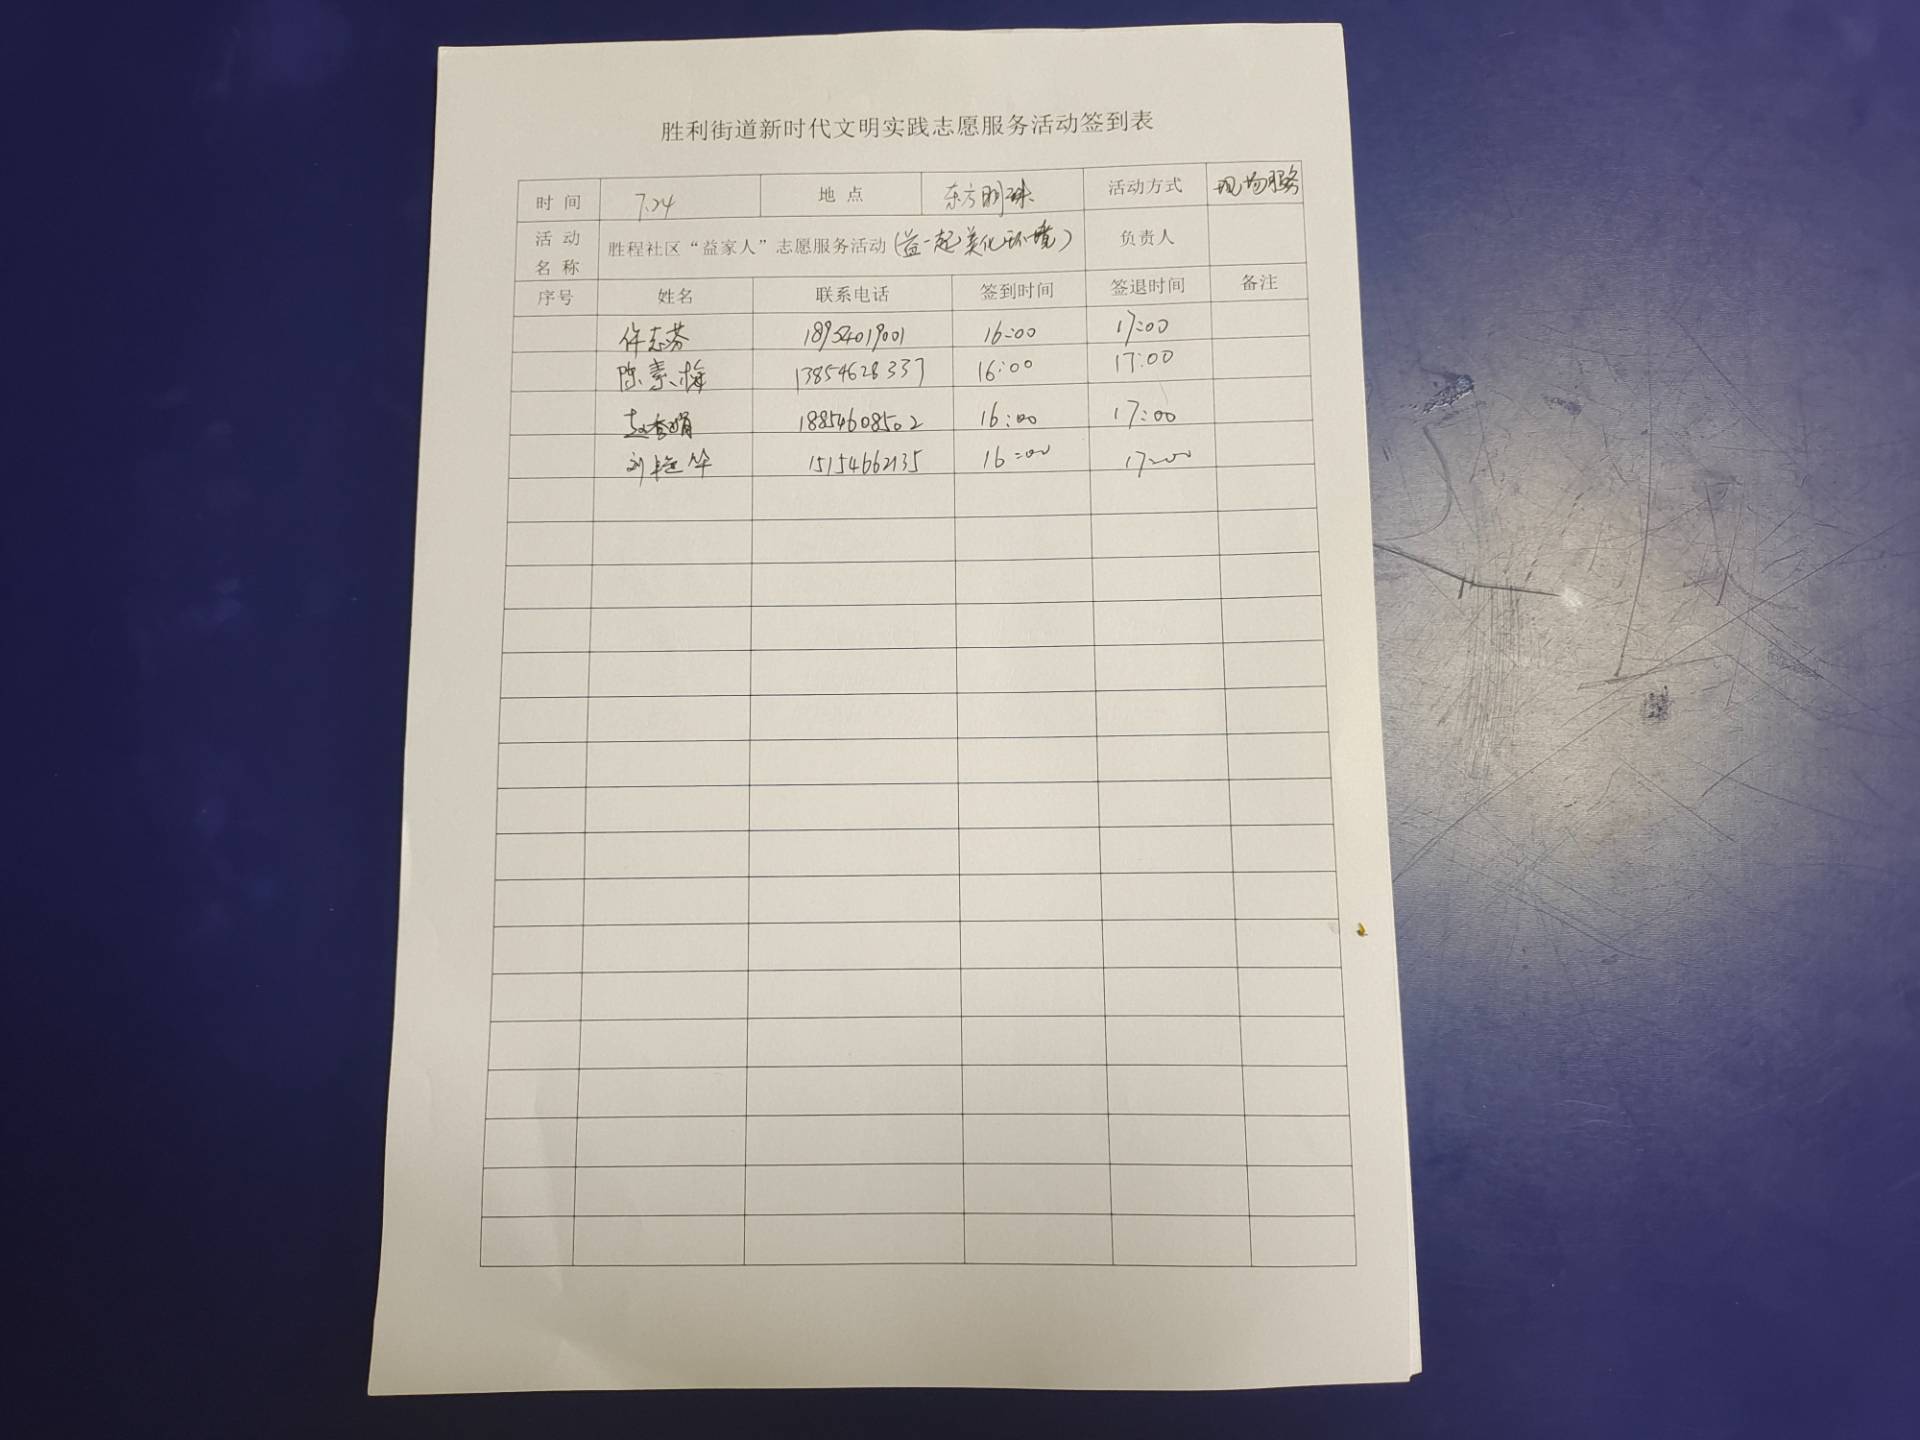 胜利街道新时代文明实践志愿服务活动签到表
时间 7.24 地点 东方明珠 活动方式 现场服务
活动名称 胜程社区“益家人”志愿服务活动(益一起美化环境) 负责人
序号 姓名 联系电话 签到时间 签退时间 备注
许志芬 18954019001 16:00 17:00
陈素梅 13854628337 16:00 17:00
赵春娟 18854608502 16:00 17:00
刘艳华 15154662135 16:00 17:00